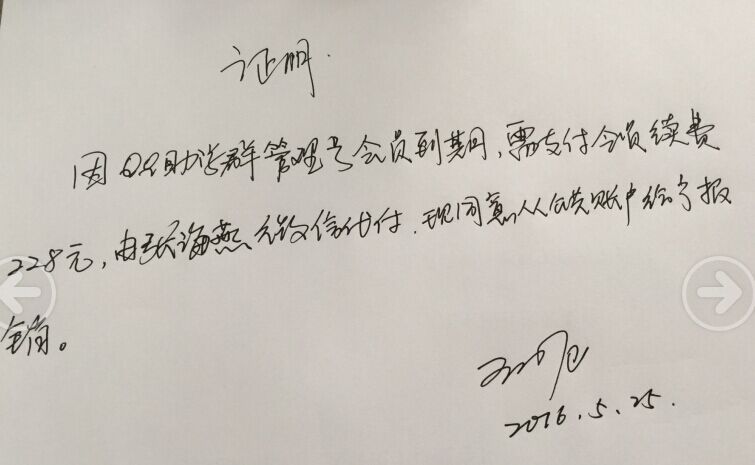 证明.
因QQ助学群管理号会员到期,需支付会员续费
228元,由张海燕微信代付.现同意从公共账户给予报
销。
2016.5.25.